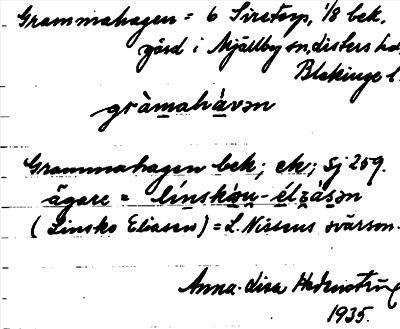 Grammahagen = 6 Siretorp, 1/8 bek.
gård i Mjällby sn, Listers hd,
Blekinge l.
gràmahávən
Grammahagen bek; ek; sj 259.
ägare =
(Linsko Eliasen) = L. Nissens svärson.
Anna-Lisa
1935.